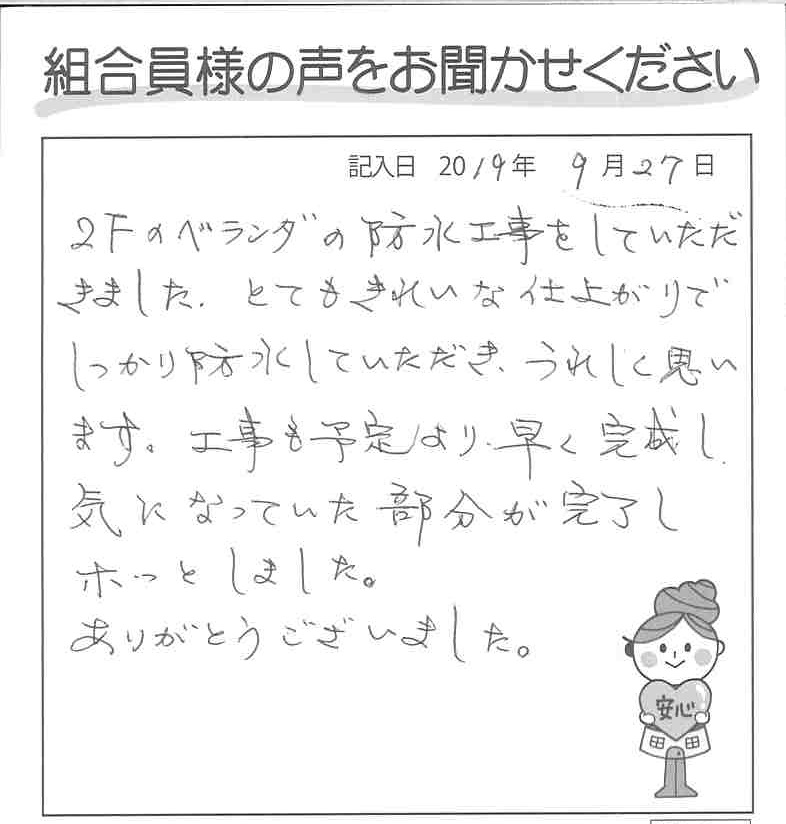 組合員様の声をお聞かせください
記入日 2019年 9月27日
2Fのベランダの防水工事をしていただ
きました. とてもきれいな仕上がりで
しっかり防水していただき、うれしく思い
ます。工事も予定より早く完成し
気になっていた部分が完了し
ホッとしました。
ありがとうございました。
安心